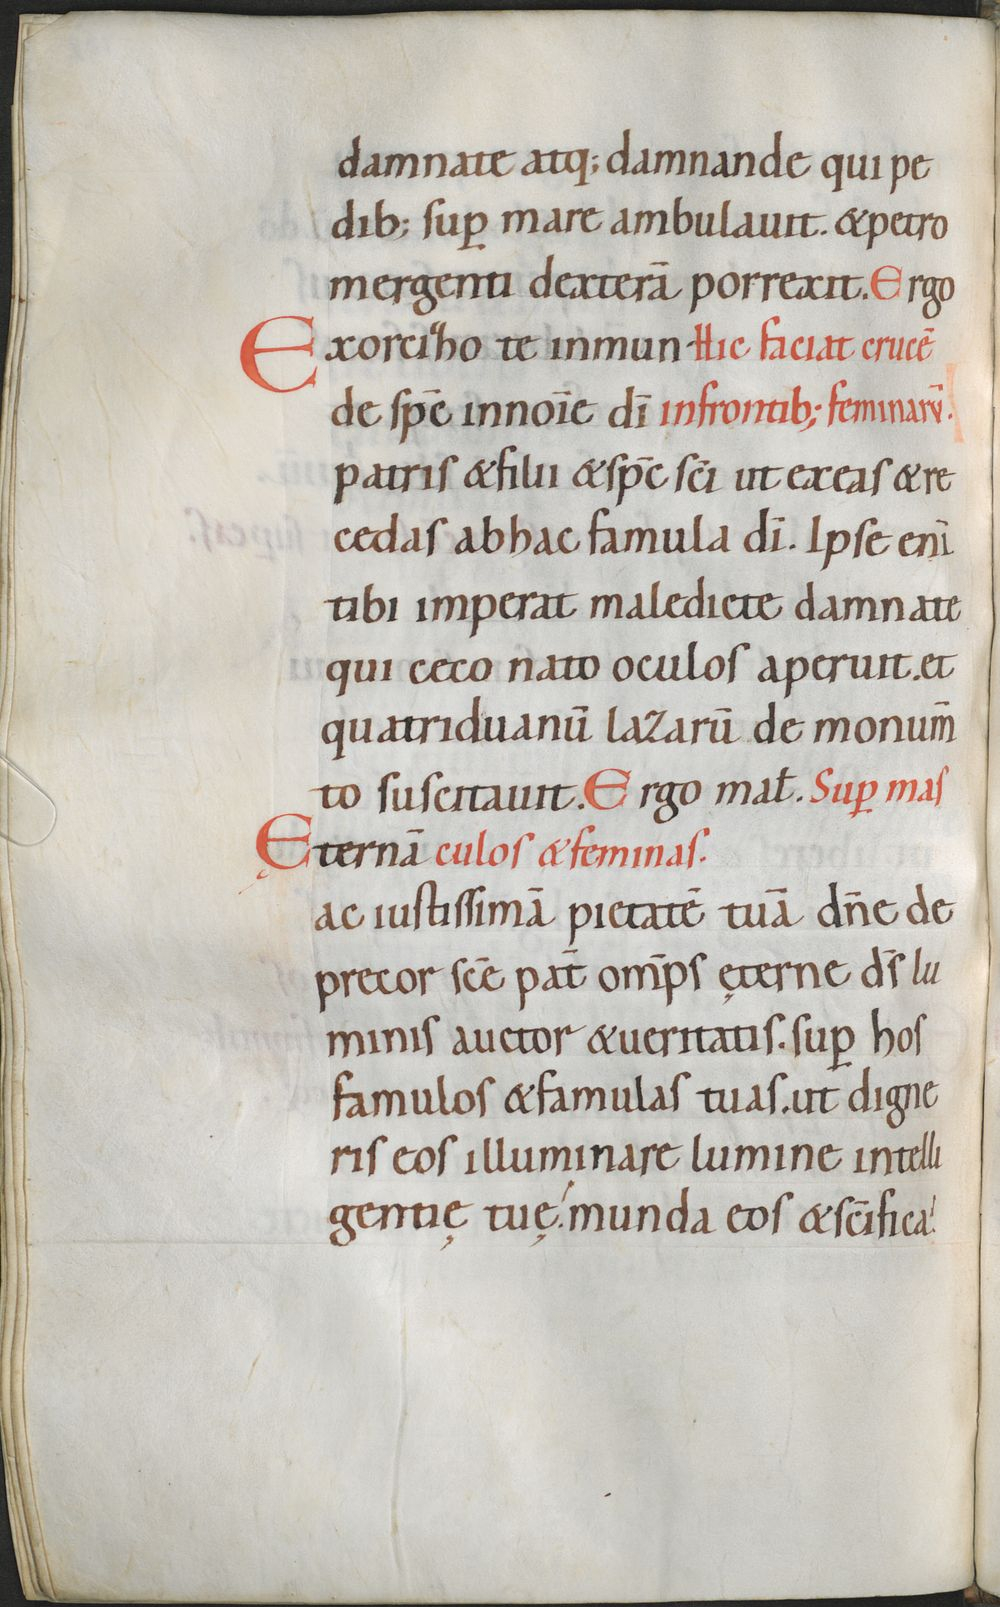 damnate atq; damnande qui pe
dib; sup mare ambulauit. & petro
mergenti dexterā porrexit. Ergo
Exorcizo te inmun Hic faciat crucē
de sp̄c in noīe dī in frontib; feminarū.
patris & filii & sp̄c sc̄i ut exeas & re
cedas ab hac famula dī. Ipse enī
tibi imperat maledicte damnate
qui ceco nato oculos aperuit. et
quatriduanū lazarū de monum̄
to suscitauit. Ergo mat. Sup mas
Ęternā culos & feminas.
ac iustissimā pietatē tuā dn̄e de
precor sc̄e pat̄ om̄ps ęterne ds̄ lu
minis auctor & ueritatis. sup hos
famulos & famulas tuas. ut digne
ris eos illuminare lumine intelli
gentię tuę. munda eos & sc̄ifica.